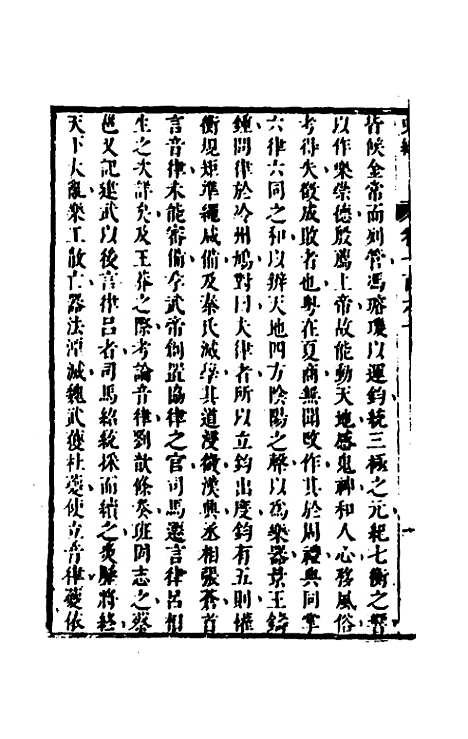 皆候金帝而列管馮瑢瓊以運鈞統三極之元紀七衡之響
以作樂崇德殷薦上帝故能動天地感鬼神和人心移風俗
考得失徵成敗者也粤在夏商無聞改作其於周禮典同掌
六律六同之和以辨天地四方陰陽之聲以爲樂器景王鑄
鍾問律於泠州鳩對曰夫律者所以立鈞出度鈞有五則權
衡規矩準繩咸備及秦氏滅學其道浸微漢興丞相張蒼首
言音律未能審備孝武帝創置協律之官司馬遷言律呂相
生之次詳矣及王莽之際考論音律劉歆條奏班固志之蔡
邕又記建武以後言律呂者司馬紹統採而續之炎歷將終
天下大亂樂工散亡器法湮滅魏武獲杜夔使立音律夔依